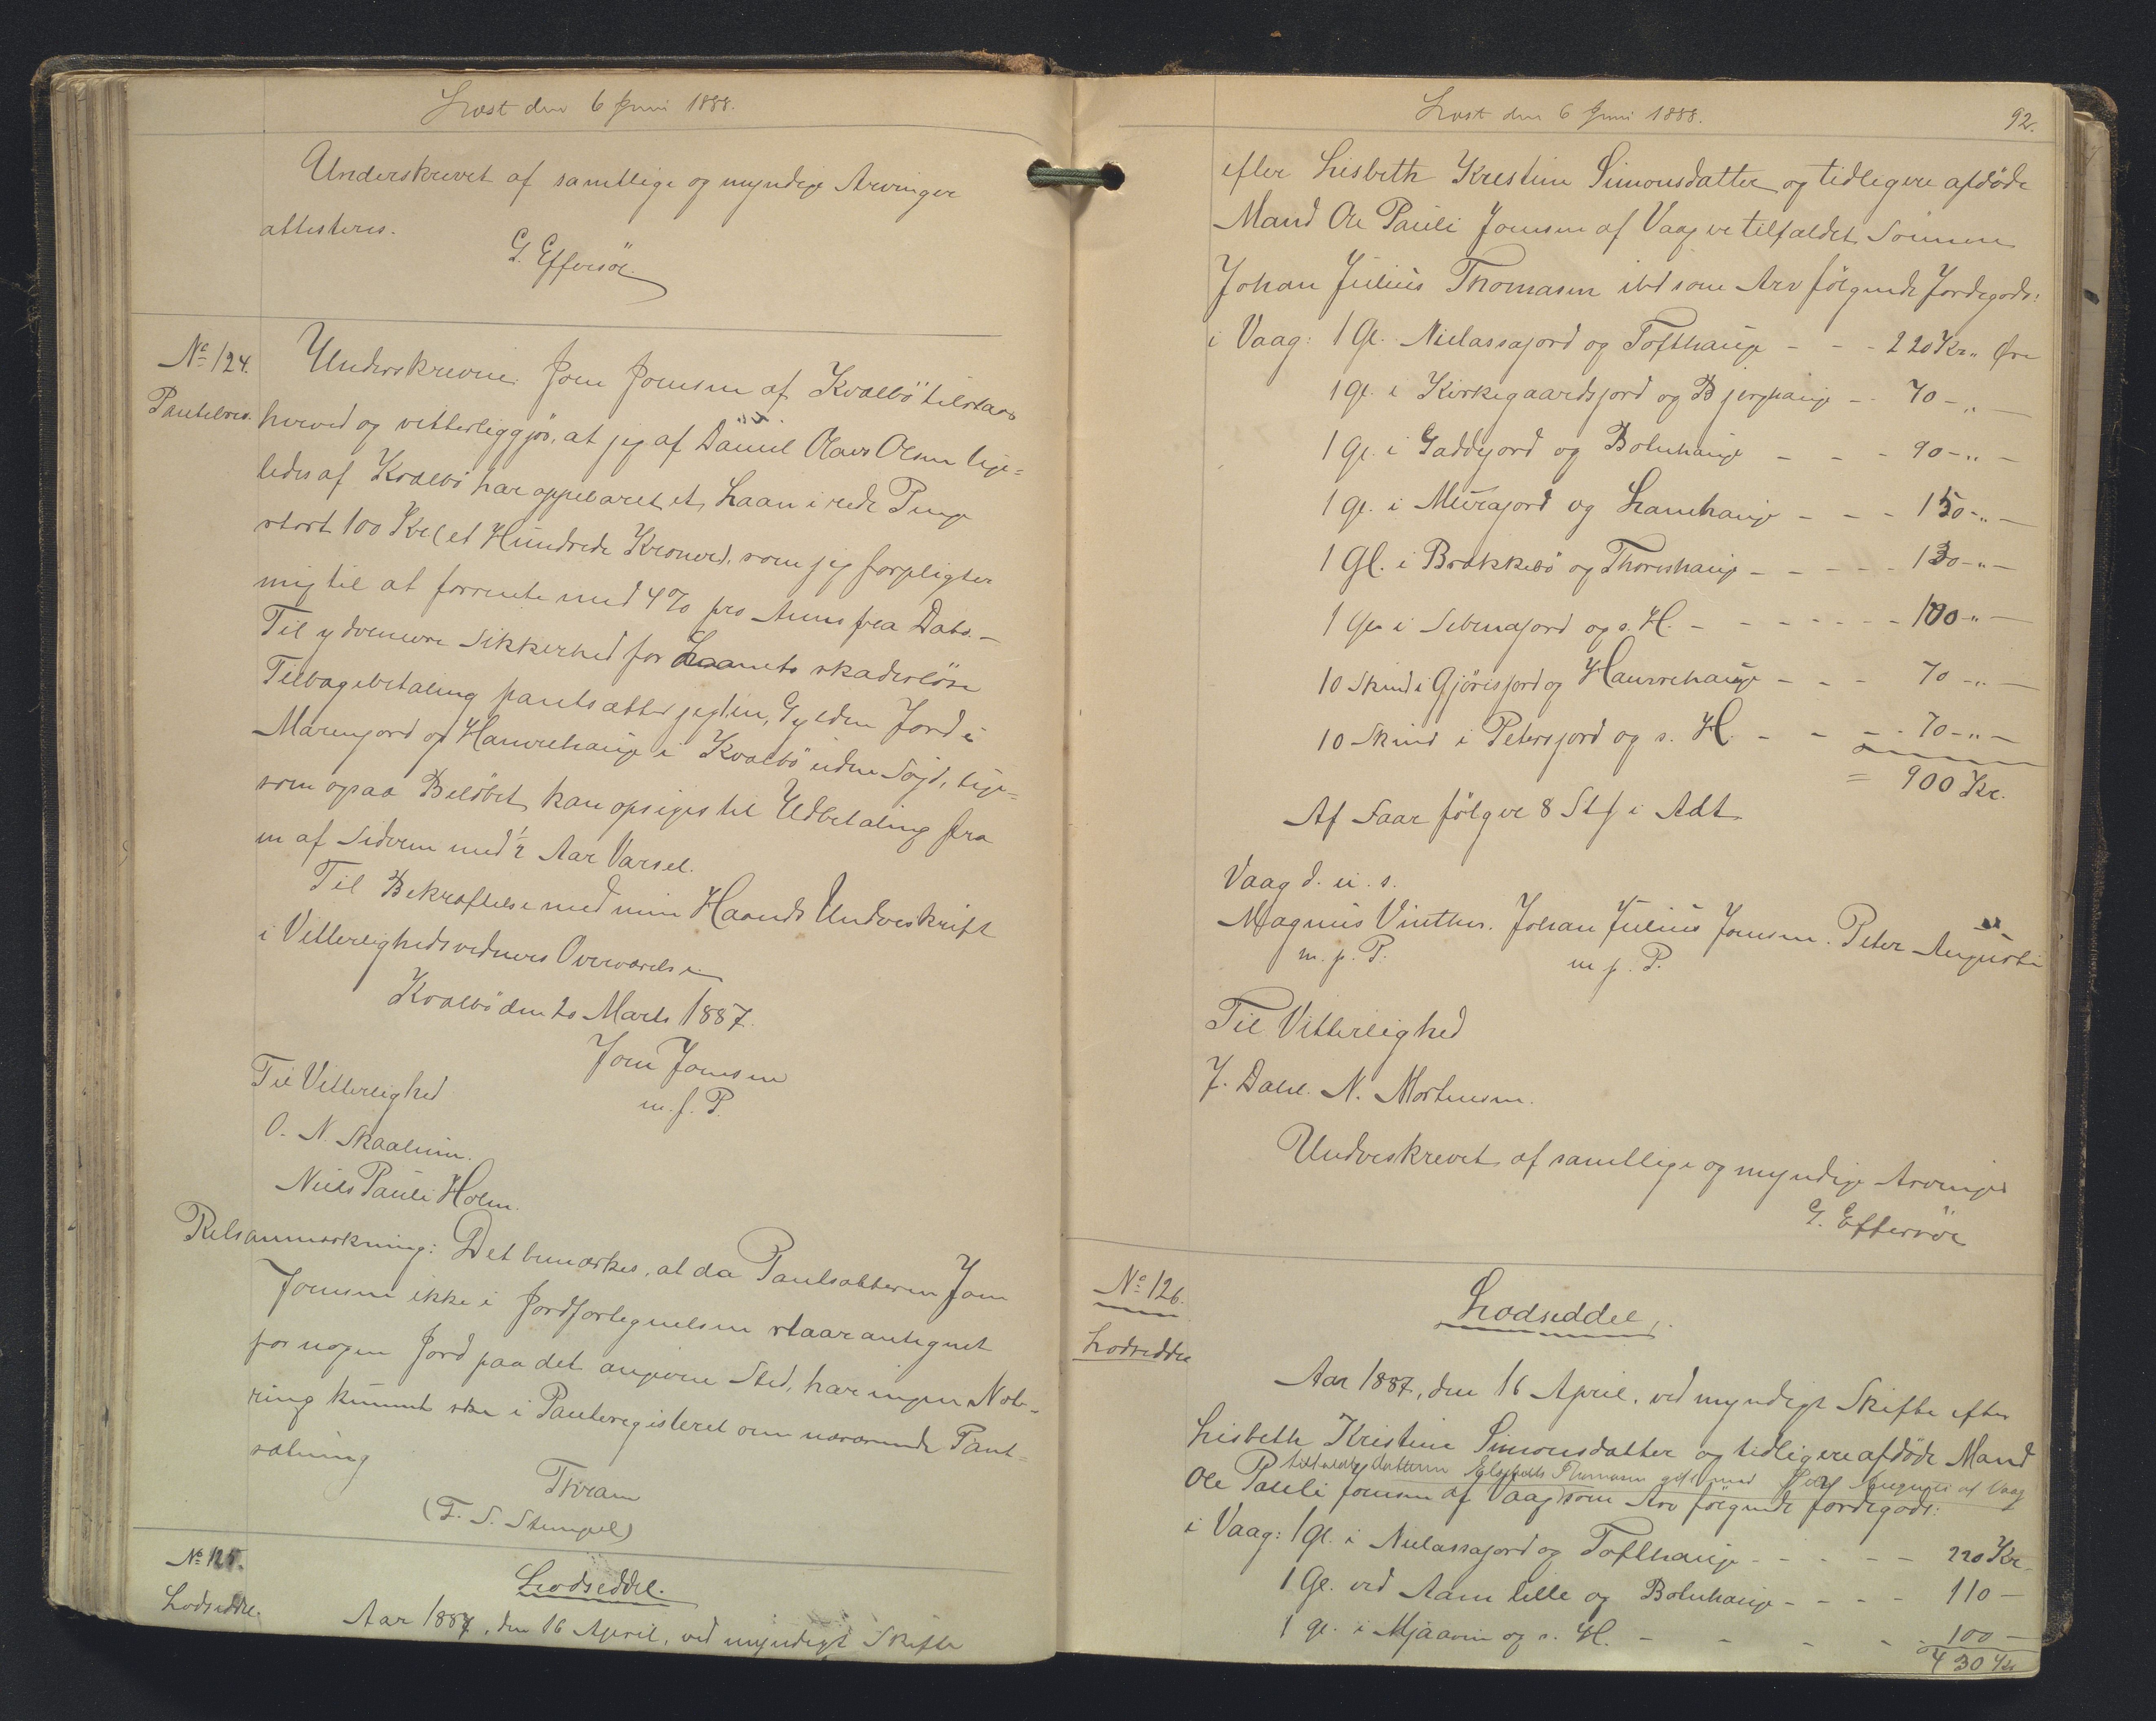 Læst den 6 Juni 1888.
Underskrevet af samtlige og myndige Arvinger
attesteres.
G. Effersöe.
No 124.
Pantebrev.
Underskrevne Joen Joensen af Kvalbö tilstaar
herved og vitterliggjör, at jeg af Daniel Olavs Olsen lige-
ledes af Kvalbö har oppebaaret et Laan i rede Penge
stort 100 Kr (et Hundrede Kroner), som jeg forpligter
mig til at forrente med 4 % pro Anno fra Dato. –
Til ydermere Sikkerhed for Laanets skadeslöse
Tilbagebetaling pantsætter jeg en Gylden Jord i
Marenjord og Hamrehauge i Kvalbö uden Söjd, lige-
som ogsaa Belöbet kan opsiges til Udbetaling fra
en af Siderne med ½ Aar Varsel.
Til Bekræftelse med min Haands Underskrift
i Vitterlighedsvidners Overværelse
Kvalbö den 20 Marts 1887.
Joen Joensen
m. f. P.
Til Vitterlighed
O. N. Skaalum.
Niels Pauli Holm.
Retsanmærkning: Det bemærkes, at da Pantsætteren Joen
Joensen ikke i Jordfortegnelsen staar antegnet
for nogen Jord paa det angivne Sted, har ingen Note-
ring kunnet ske i Panteregisteret om nærværende Pant-
sætning
Thram
(T. S. Stempel)
No 125.
Lodseddel.
Lodseddel.
Aar 1887, den 16 April, ved myndigt Skifte
Læst den 6 Juni 1888.
92.
efter Lisbeth Kristine Simonsdatter og tidligere afdöde
Mand Ole Pauli Joensen af Vaag er tilfaldet Sönnen
Johan Julius Thomasen ibd som Arv fölgende Jordegods:
i Vaag: 1 Gl. Nielassajord og Tofthauge - - - 220 Kr " Öre
1 Gl. i Kirkegaardsjord og Bjerghauge - - 70 - " -
1 Gl. i Gaddejord og Bolnhauge - - - 90 - " -
1 Gl. i Meurajord og Lamhauge - - - 150 - " -
1 Gl. i Brekkebö og Thoreshauge - - - - - 130 - " -
1 Gl. i Sibmajord og s. H. - - - - - - - 100 - " -
10 Skind i Gjörisjord og Hamrehauge - - - 70 - " -
10 Skind i Petersjord og s. H. - - - - 70 - " -
= 900 Kr.
Af Faar fölger 8 Stk i Alt
Vaag d. u. s.
Magnus Vinther. Johan Julius Joensen. Peter Augusti
m. f. P. m. f. P.
Til Vitterlighed
J. Dahl. N. Mortensen.
Underskrevet af samtlige og myndige Arvinger
G. Effersöe
No 126.
Lodseddel
Lodseddel.
Aar 1887, den 16 April, ved myndigt Skifte efter
Lisbeth Kristine Simonsdatter og tidligere afdöde Mand
tilfaldt Datteren Elspa Thomasen gift med Augusti af Vaag
Ole Pauli Joensen af Vaag som Arv fölgende Jordegods:
i Vaag: 1 Gl. i Nielassajord og Tofthauge - - - - - 220 Kr -
1 Gl. ved Aam lille og Bolnhauge - - - - 110 -
1 Gl. i Mjaavin og s. H. - - - - 100 -
430 Kr